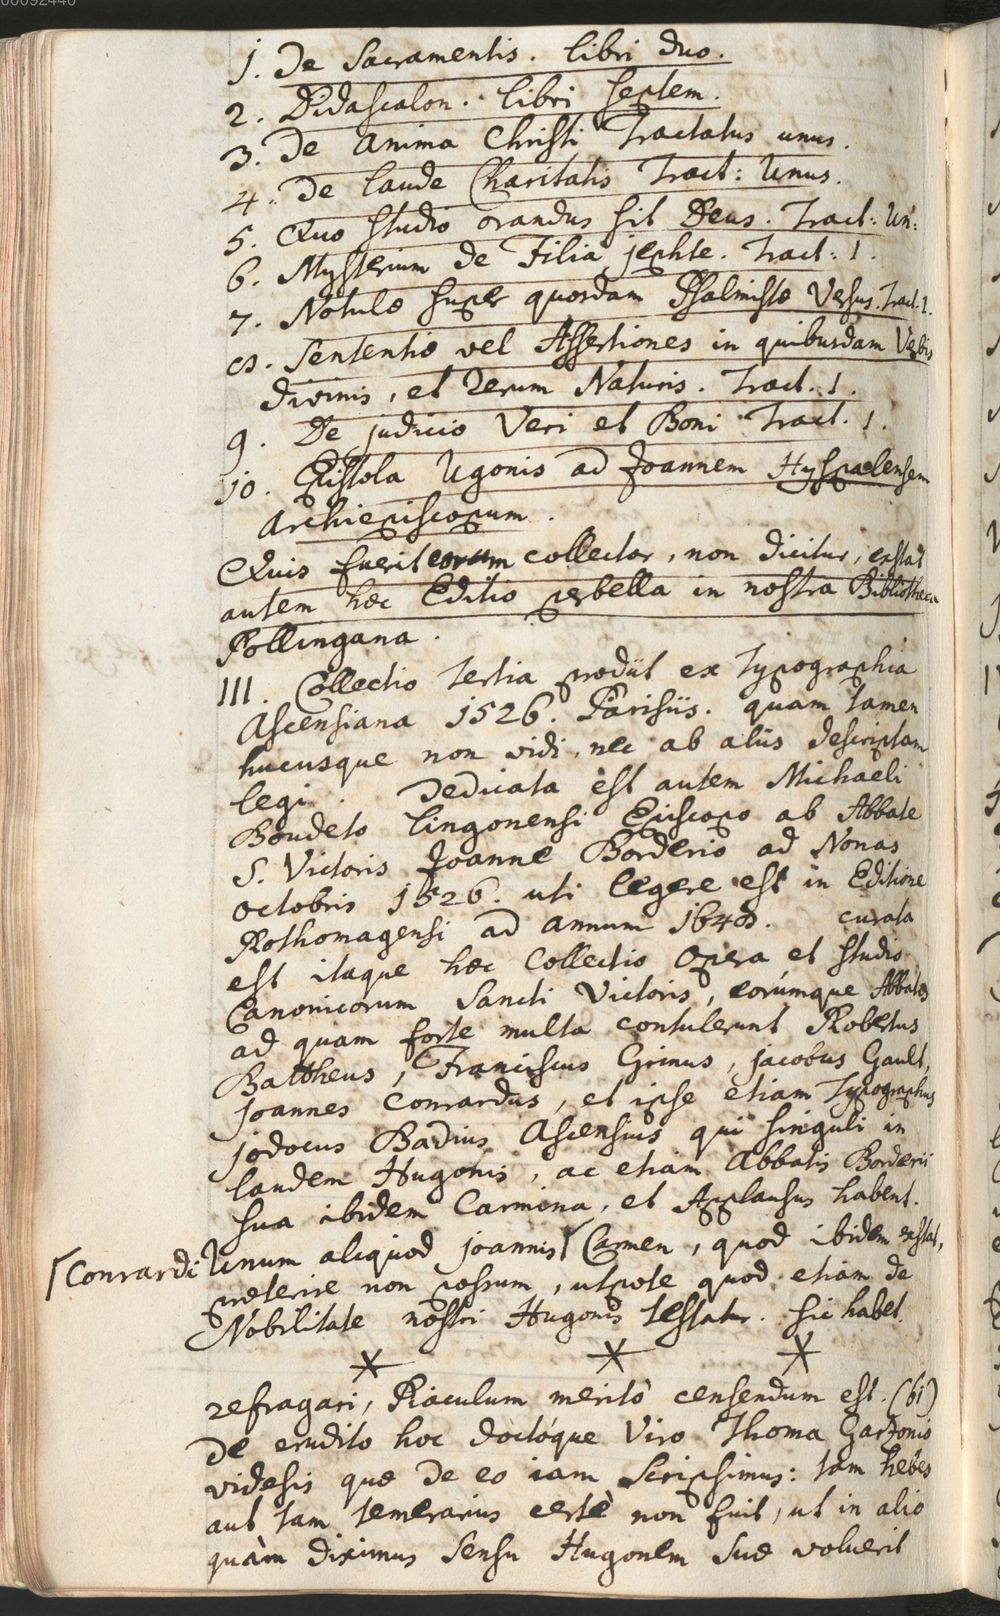 00092440
1. De Sacramentis. libri duo.
2. Didascalon. libri septem.
3. De anima Christi Tractatus unus.
4. De laude Charitatis Tract: Unus.
5. Quo studio orandus sit Deus. Tract: Un:
6. Mysterium de Filia jephte. Tract: 1.
7. Notulæ super quosdam Psalmistæ Versus. Tract. 1.
8. Sententiæ vel Assertiones in quibusdam Verbis
divinis, et rerum Naturis. Tract. 1.
9. De judicio Veri et Boni Tract. 1.
10. Epistola Ugonis ad Joannem Hyspalensem
Archiepiscopum.
Quis fuerit eorum collector, non dicitur, exstat
autem hæc Editio perbella in nostra Bibliotheca
Pollingana.
III. Collectio tertia prodiit ex Typographia
Ascensiana 1526. Parisiis. quam tamen
hucusque non vidi, nec ab aliis descriptam
legi. Dedicata est autem Michaeli
Boudeto Lingonensi Episcopo ab Abbate
S. Victoris Joanne Borderio ad Nonas
octobris 1526. uti legere est in Editione
Rothomagensi ad annum 1648. curata
est itaque hæc Collectio opera et studio
Canonicorum Sancti Victoris, eorúmque Abbatis
ad quam forte multa contulerunt Robertus
Battheus, Franciscus Grimus, jacobus Gault,
Joannes Conrardus, et ipse etiam Typographus
jodocus Badius Ascensius qui singuli in
laudem Hugonis, ac etiam Abbatis Borderii
sua ibidem Carmina, et Applausus habent.
Unum aliquod joannis Γ Carmen, quod ibidem exstat,
Γ Conrardi
præterire non possum, utpote quod etiam de
Nobilitate nostri Hugonis testatur. sic habet.
* * *
refragari, Piaculum meritò censendum est. (bi)
De erudito hoc doctóque Viro Thoma Garzonio
videsis quæ de eo iam scripsimus: tam hebes
aut tam temerarius certè non fuit, ut in alio
quàm diximus sensu Hugonem suæ voluerit